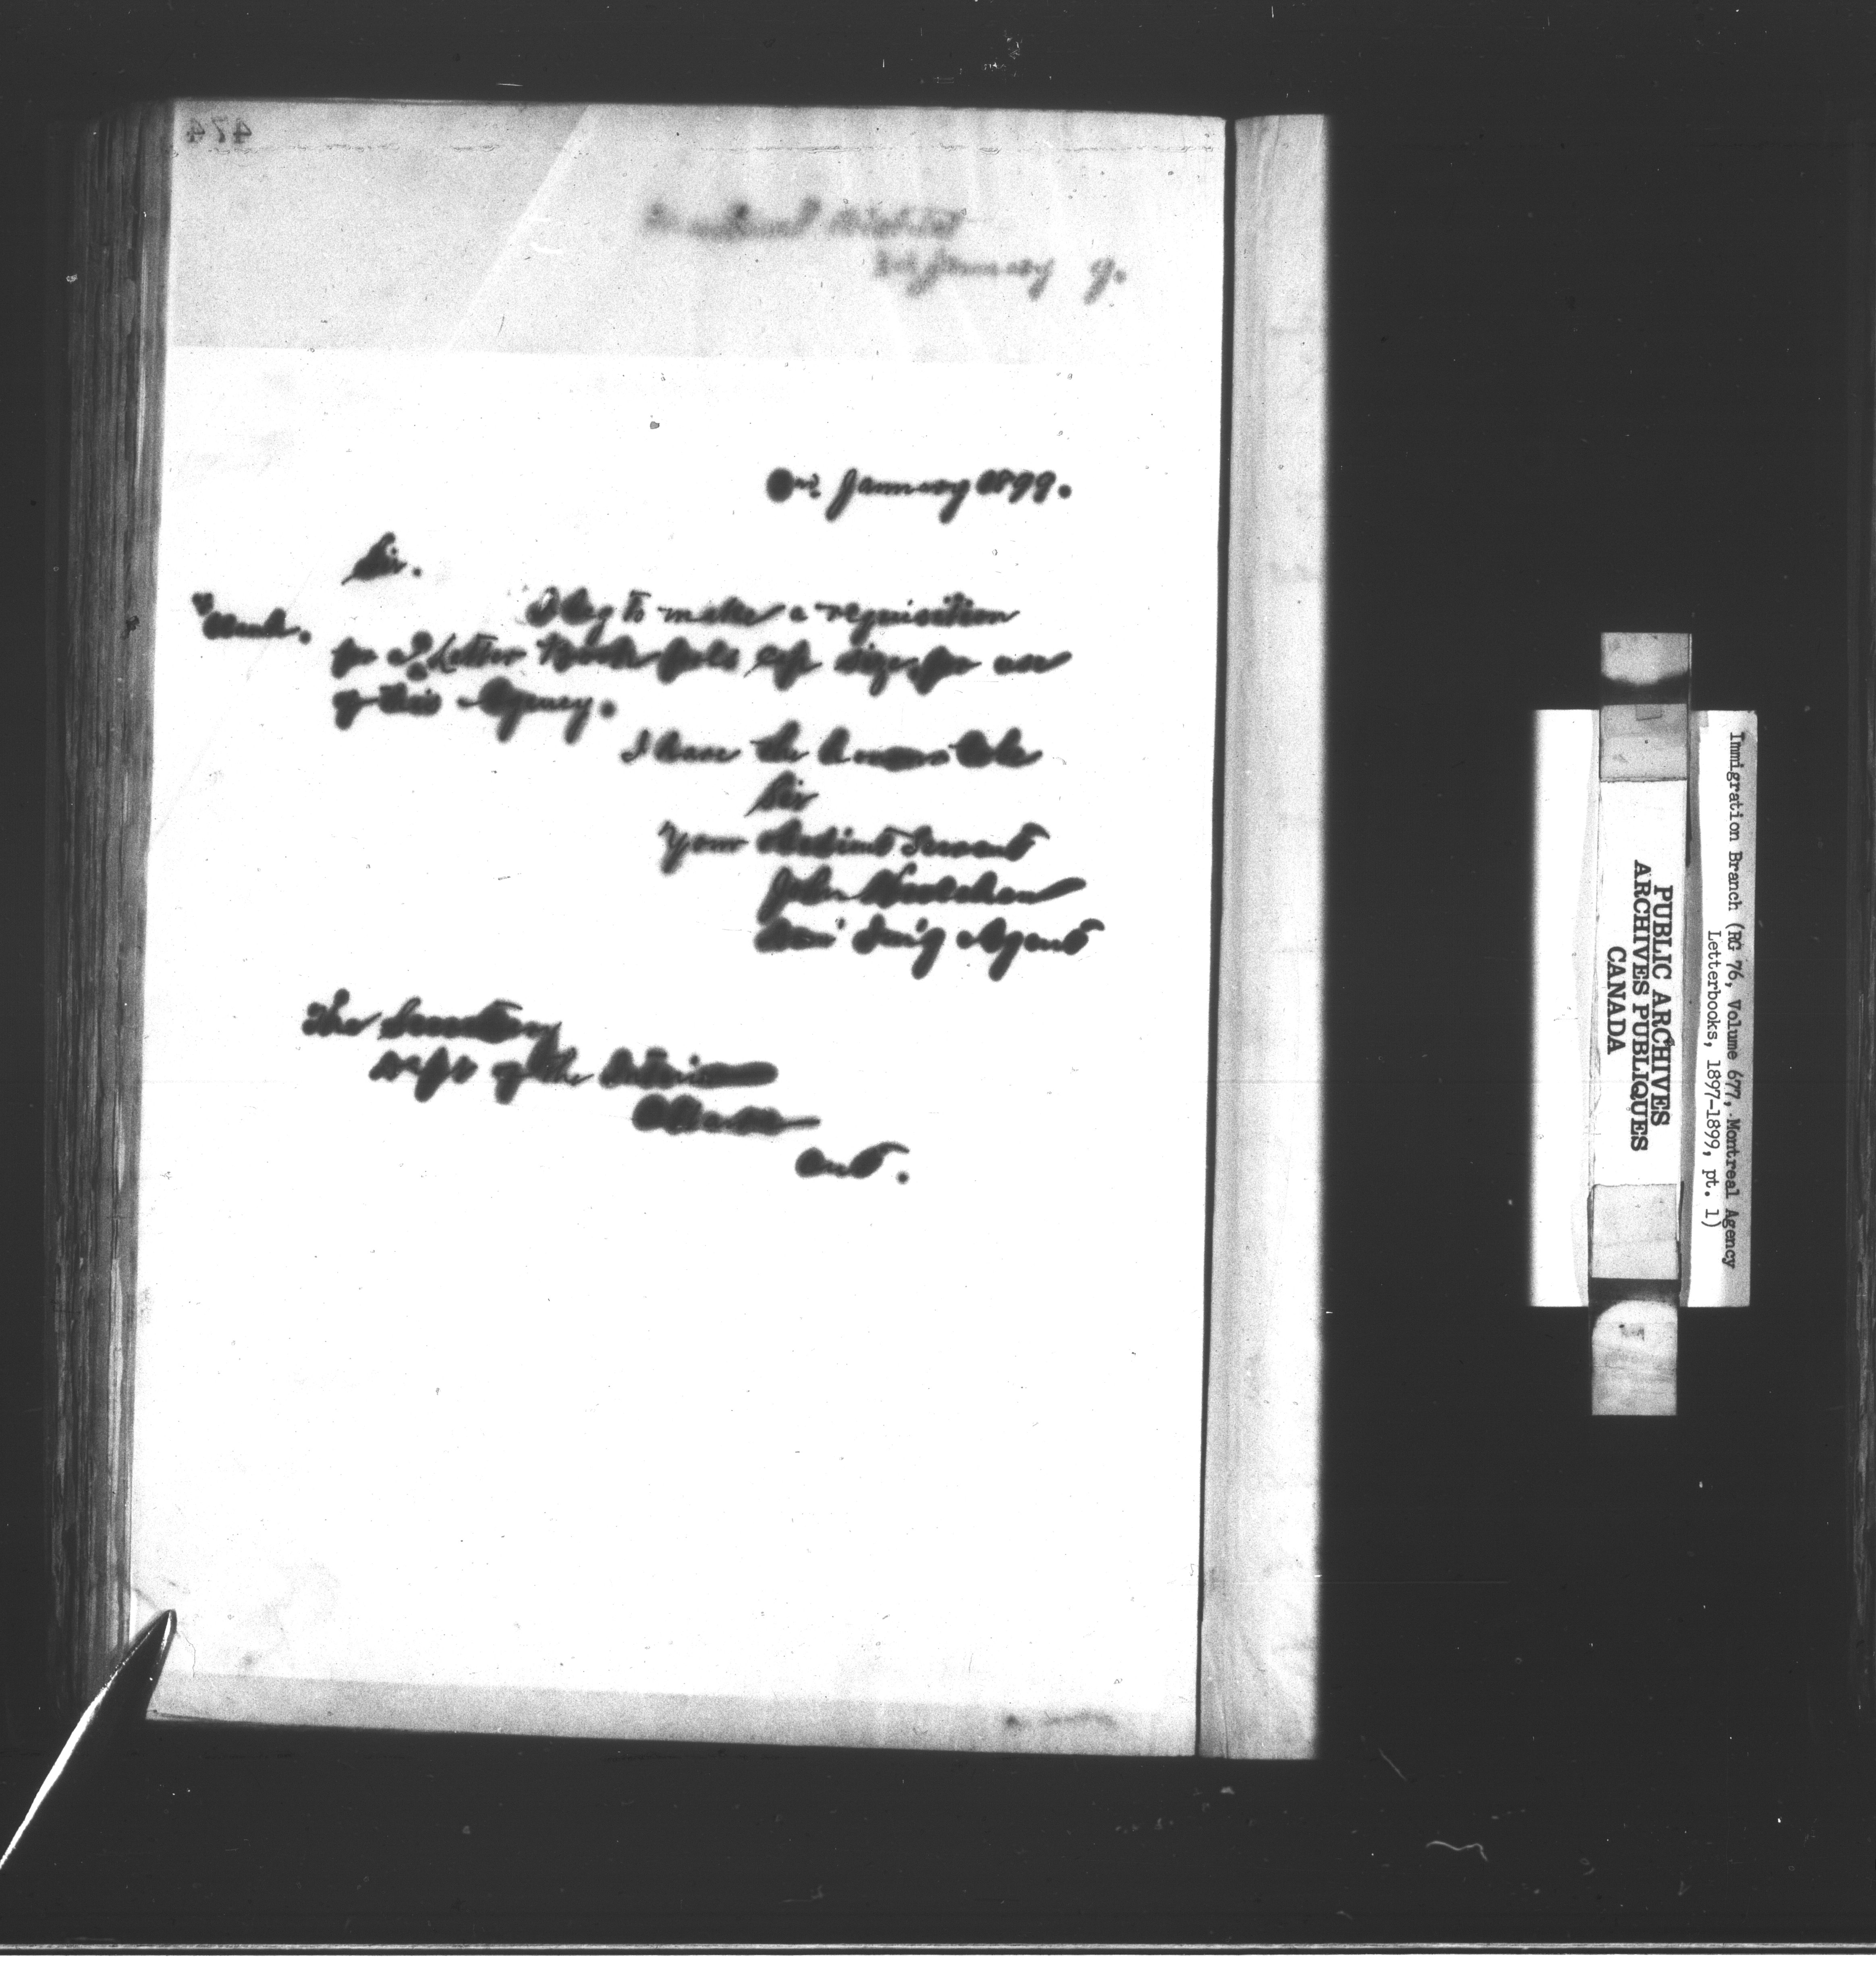 474
January 9.
January 1899.
Sir.
I beg to make a requisition
for Letter Book fools cap size for use
of this Agency.
I have the honour to be
Sir
Your Obedient Servant
John
Agent
The Secretary
Dept of the Interior
Ottawa
Ont.
Immigration Branch (RG 76, Volume 677, Montreal Agency
Letterbooks, 1897-1899, pt. 1)
PUBLIC ARCHIVES
ARCHIVES PUBLIQUES
CANADA